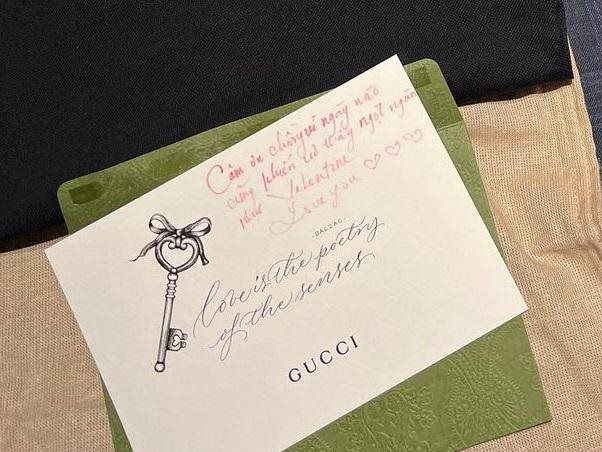 Cảm ơn chồng vì ngày nào
cũng phiền vợ ngọt ngào
như Valentine
Love you ♡ ♡ ♡
-BALZAC-
love is the poetry
of the senses
GUCCI